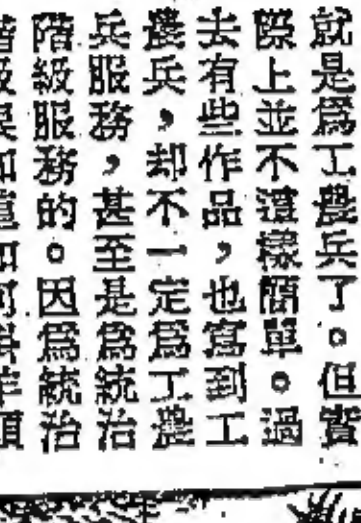 就是爲工農兵了。但實
際上並不這樣簡單。過
去有些作品，也寫到工
農兵，却不一定爲工農
兵服務，甚至是爲統治
階級服務的。因爲統治